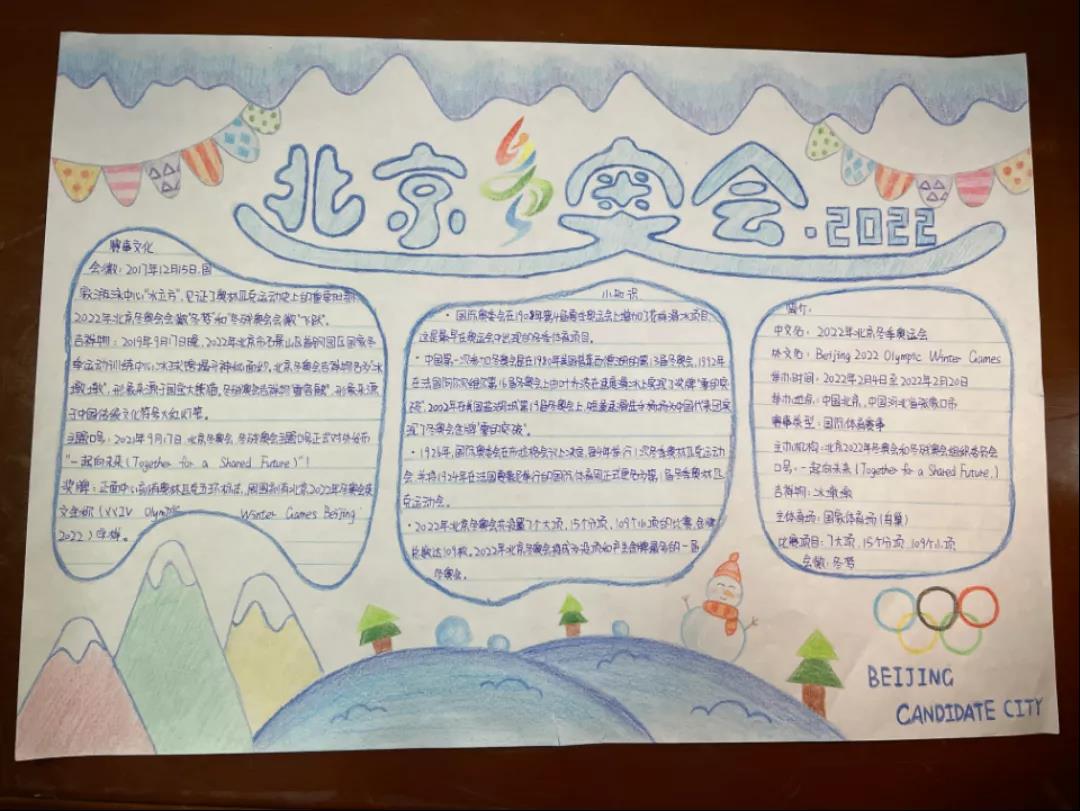 北京冬奥会·2022
赛事文化
会徽：2017年12月15日，国
家游泳中心“水立方”，见证了奥林匹克运动史上的重要时刻
2022年北京冬奥会会徽“冬梦”和冬残奥会会徽“飞跃”。
吉祥物：2019年9月17日晚，2022年北京市石景山区首钢园区国家冬
季运动训练中心冰球馆揭开神秘面纱，北京冬奥会吉祥物名为“冰
墩墩”，形象来源于国宝大熊猫。冬残奥会吉祥物“雪容融”，形象来源
于中国传统文化符号大红灯笼。
主题口号：2021年9月17日，北京冬奥会、冬残奥会主题口号正式对外发布
“一起向未来(Together for a Shared Future)”！
奖牌：正面中心刻有奥林匹克五环标志，周围刻有北京2022年冬奥会英
文全称(XXIV Olympic Winter Games Beijing
2022)字样。
小知识
·国际奥委会在1908年第4届夏季奥运会上增加了花样滑冰项目，
这是最早在奥运会中出现的冬季体育项目。
·中国第一次参加冬奥会是在1980年美国普莱西德湖的第13届冬奥会，1992年
在法国阿尔贝维尔第16届冬奥会上由叶乔波在速度滑冰上实现了奖牌“零的突
破”，2002年在美国盐湖城第19届冬奥会上，短道速滑运动员杨扬为中国代表团实
现了冬奥会金牌“零的突破”。
·1925年，国际奥委会在布拉格会议上决定，每4年举行1次冬季奥林匹克运动
会，并将1924年在法国夏蒙尼举行的国际体育周正式更名为第1届冬季奥林匹
克运动会。
·2022年北京冬奥会共设置7个大项，15个分项，109个小项的比赛，金牌
总数达109枚。2022年北京冬奥会将成为设项和产生金牌最多的一届
冬奥会。
简介：
中文名：2022年北京冬季奥运会
外文名：Beijing 2022 Olympic Winter Games
举办时间：2022年2月4日至2022年2月20日
举办地点：中国北京，中国河北省张家口市
赛事类型：国际体育赛事
主办机构：北京2022年冬奥会和冬残奥会组织委员会
口号：一起向未来(Together for a Shared Future,)
吉祥物：冰墩墩
主体育场：国家体育场(鸟巢)
比赛项目：7大项，15个分项，109个小项
会徽：冬梦
BEIJING
CANDIDATE CITY